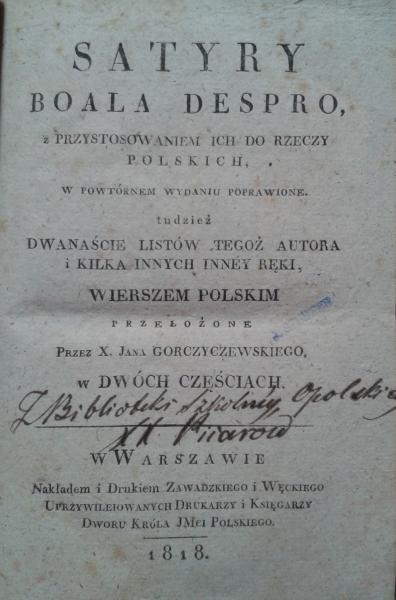 SATYRY
BOALA DESPRO,
z PRZYSTOSOWANIEM ICH DO RZECZY
POLSKICH,
W POWTÓRNEM WYDANIU POPRAWIONE.
tudzież
DWANAŚCIE LISTÓW TEGOŻ AUTORA
i KILKA INNYCH INNÉY RĘKI,
WIERSZEM POLSKIM
PRZEŁOŻONE
PRZEZ X. JANA GORCZYCZEWSKIEGO,
w DWÓCH CZĘŚCIACH.
Z Biblioteki Szkolnéy Opolskiej
XX. Piiarow
W WARSZAWIE
Nakładem i Drukiem ZAWADZKIEGO i WĘCKIEGO
UPRZYWILEIOWANYCH DRUKARZY i KSIĘGARZY
DWORU KRÓLA JMCI POLSKIEGO.
1818.